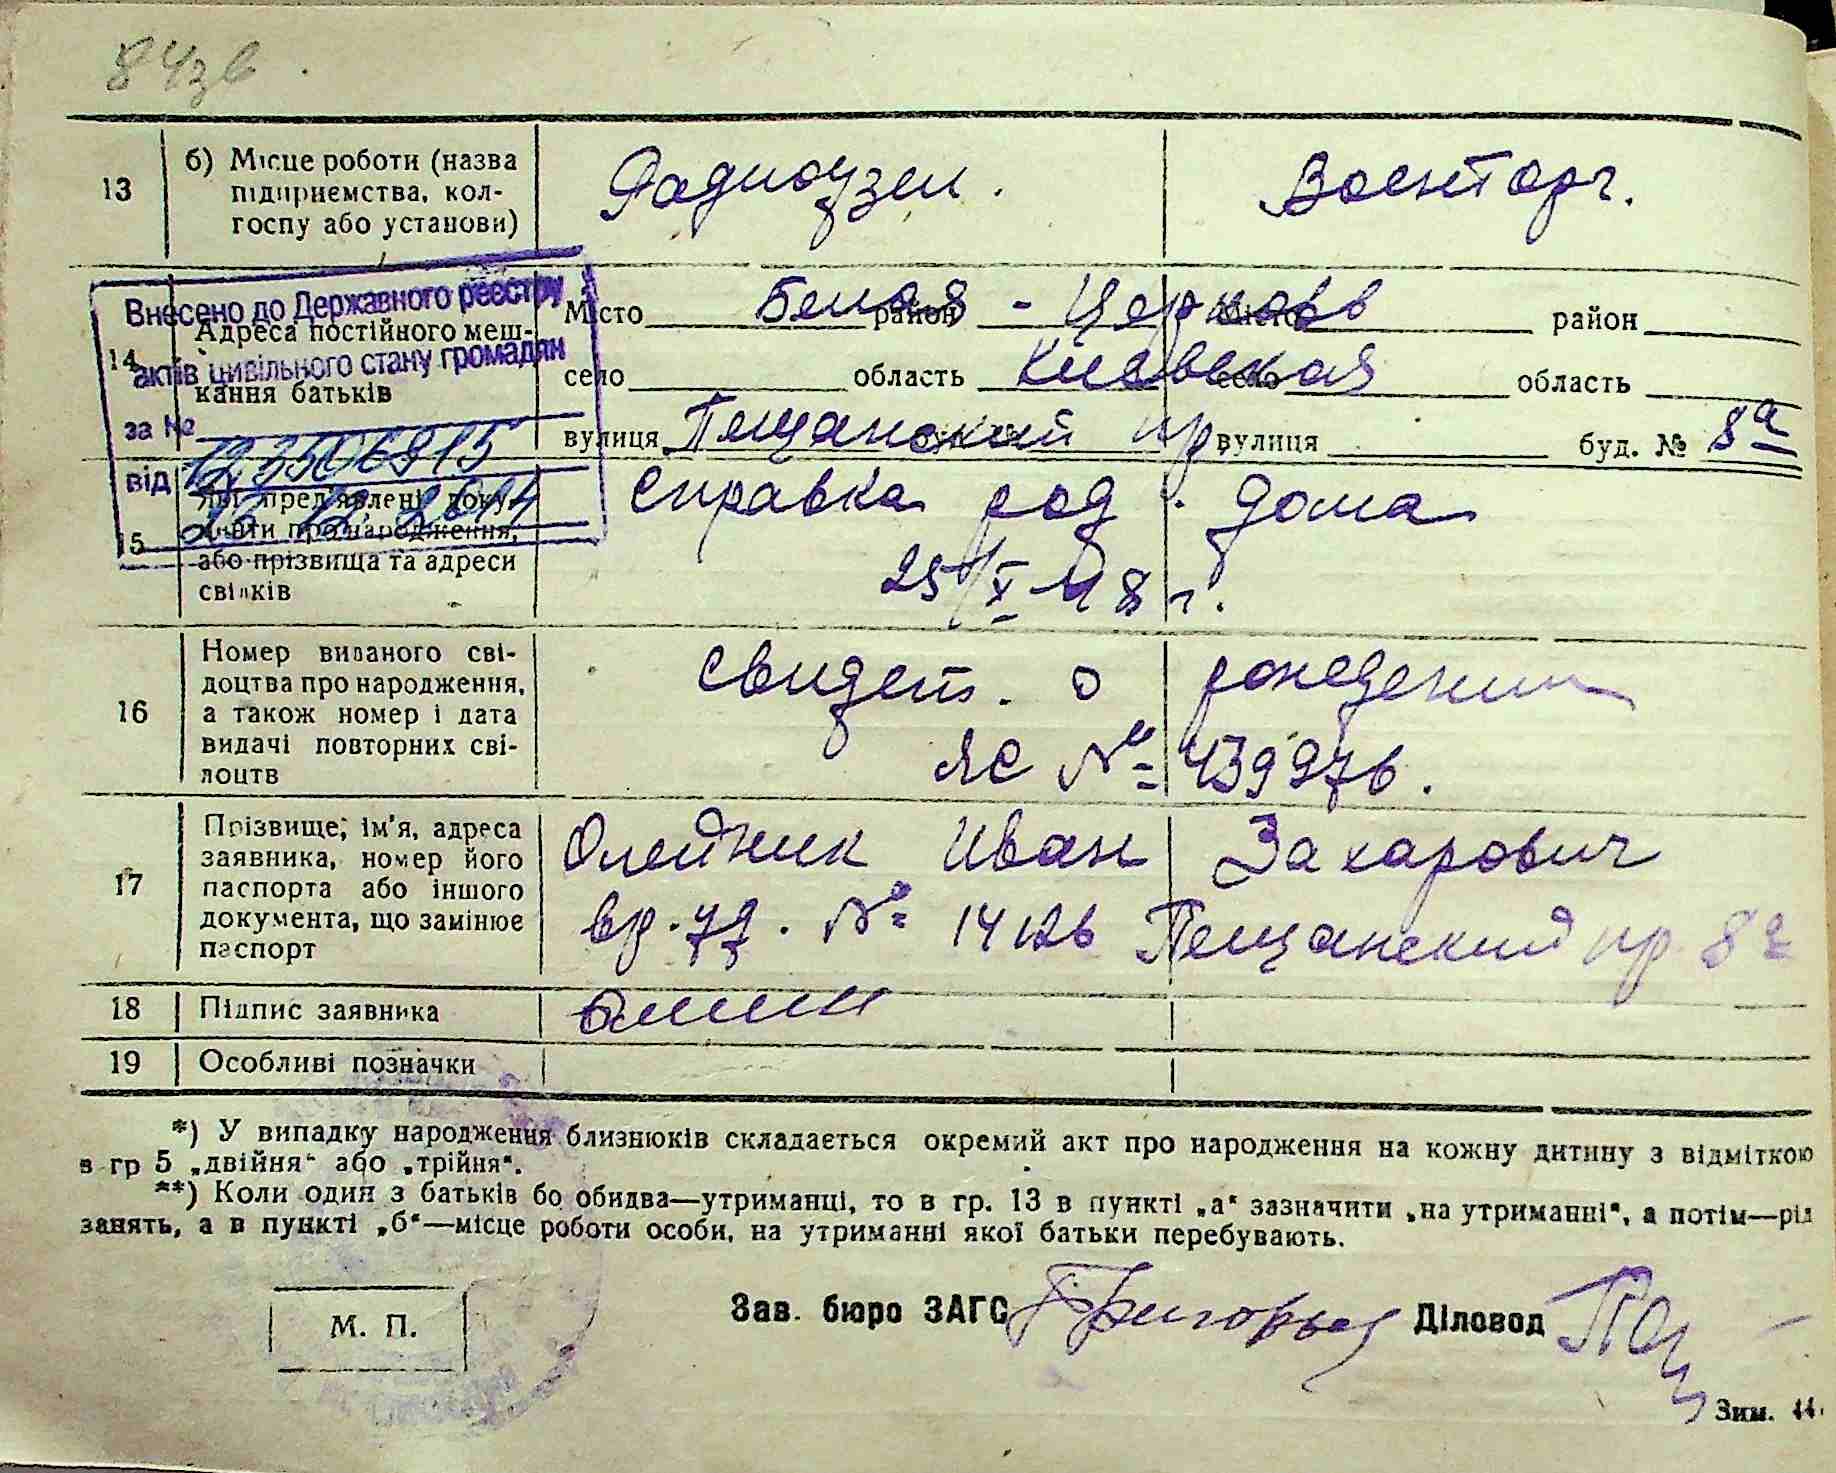 84зв.
13
б) Місце роботи (назва
підприємства, кол-
госпу або установи)
Радиоузел.
Военторг.
Внесено до Державного реєстру
актів цивільного стану громадян
за № 123506915
від
14
Адреса постійного меш-
кання батьків
Місто Белая - Церковь район місто район
село область Киевская село область
вулиця Пещанский пр вулиця буд. № 8а
15
Які пред'явлені доку-
менти про народження,
або прізвища та адреси
свідків
Справка род. дома
25/X 48 г.
16
Номер виданого сві-
доцтва про народження,
а також номер і дата
видачі повторних сві-
доцтв
Свидет. о рождении
ЯС № 439976.
17
Прізвище, ім'я, адреса
заявника, номер його
паспорта або іншого
документа, що замінює
паспорт
Олейник Иван Захарович
вр. уд. № 14126 Пещанский пр 8а
18
Підпис заявника
19
Особливі позначки
*) У випадку народження близнюків складається окремий акт про народження на кожну дитину з відміткою
в гр 5 „двійня“ або „трійня“.
**) Коли один з батьків бо обидва—утриманці, то в гр. 13 в пункті „а“ зазначити „на утриманні“, а потім—рід
занять, а в пункті „б“—місце роботи особи, на утриманні якої батьки перебувають.
М. П.
Зав. бюро ЗАГС Григорьев Діловод
Зим. 44